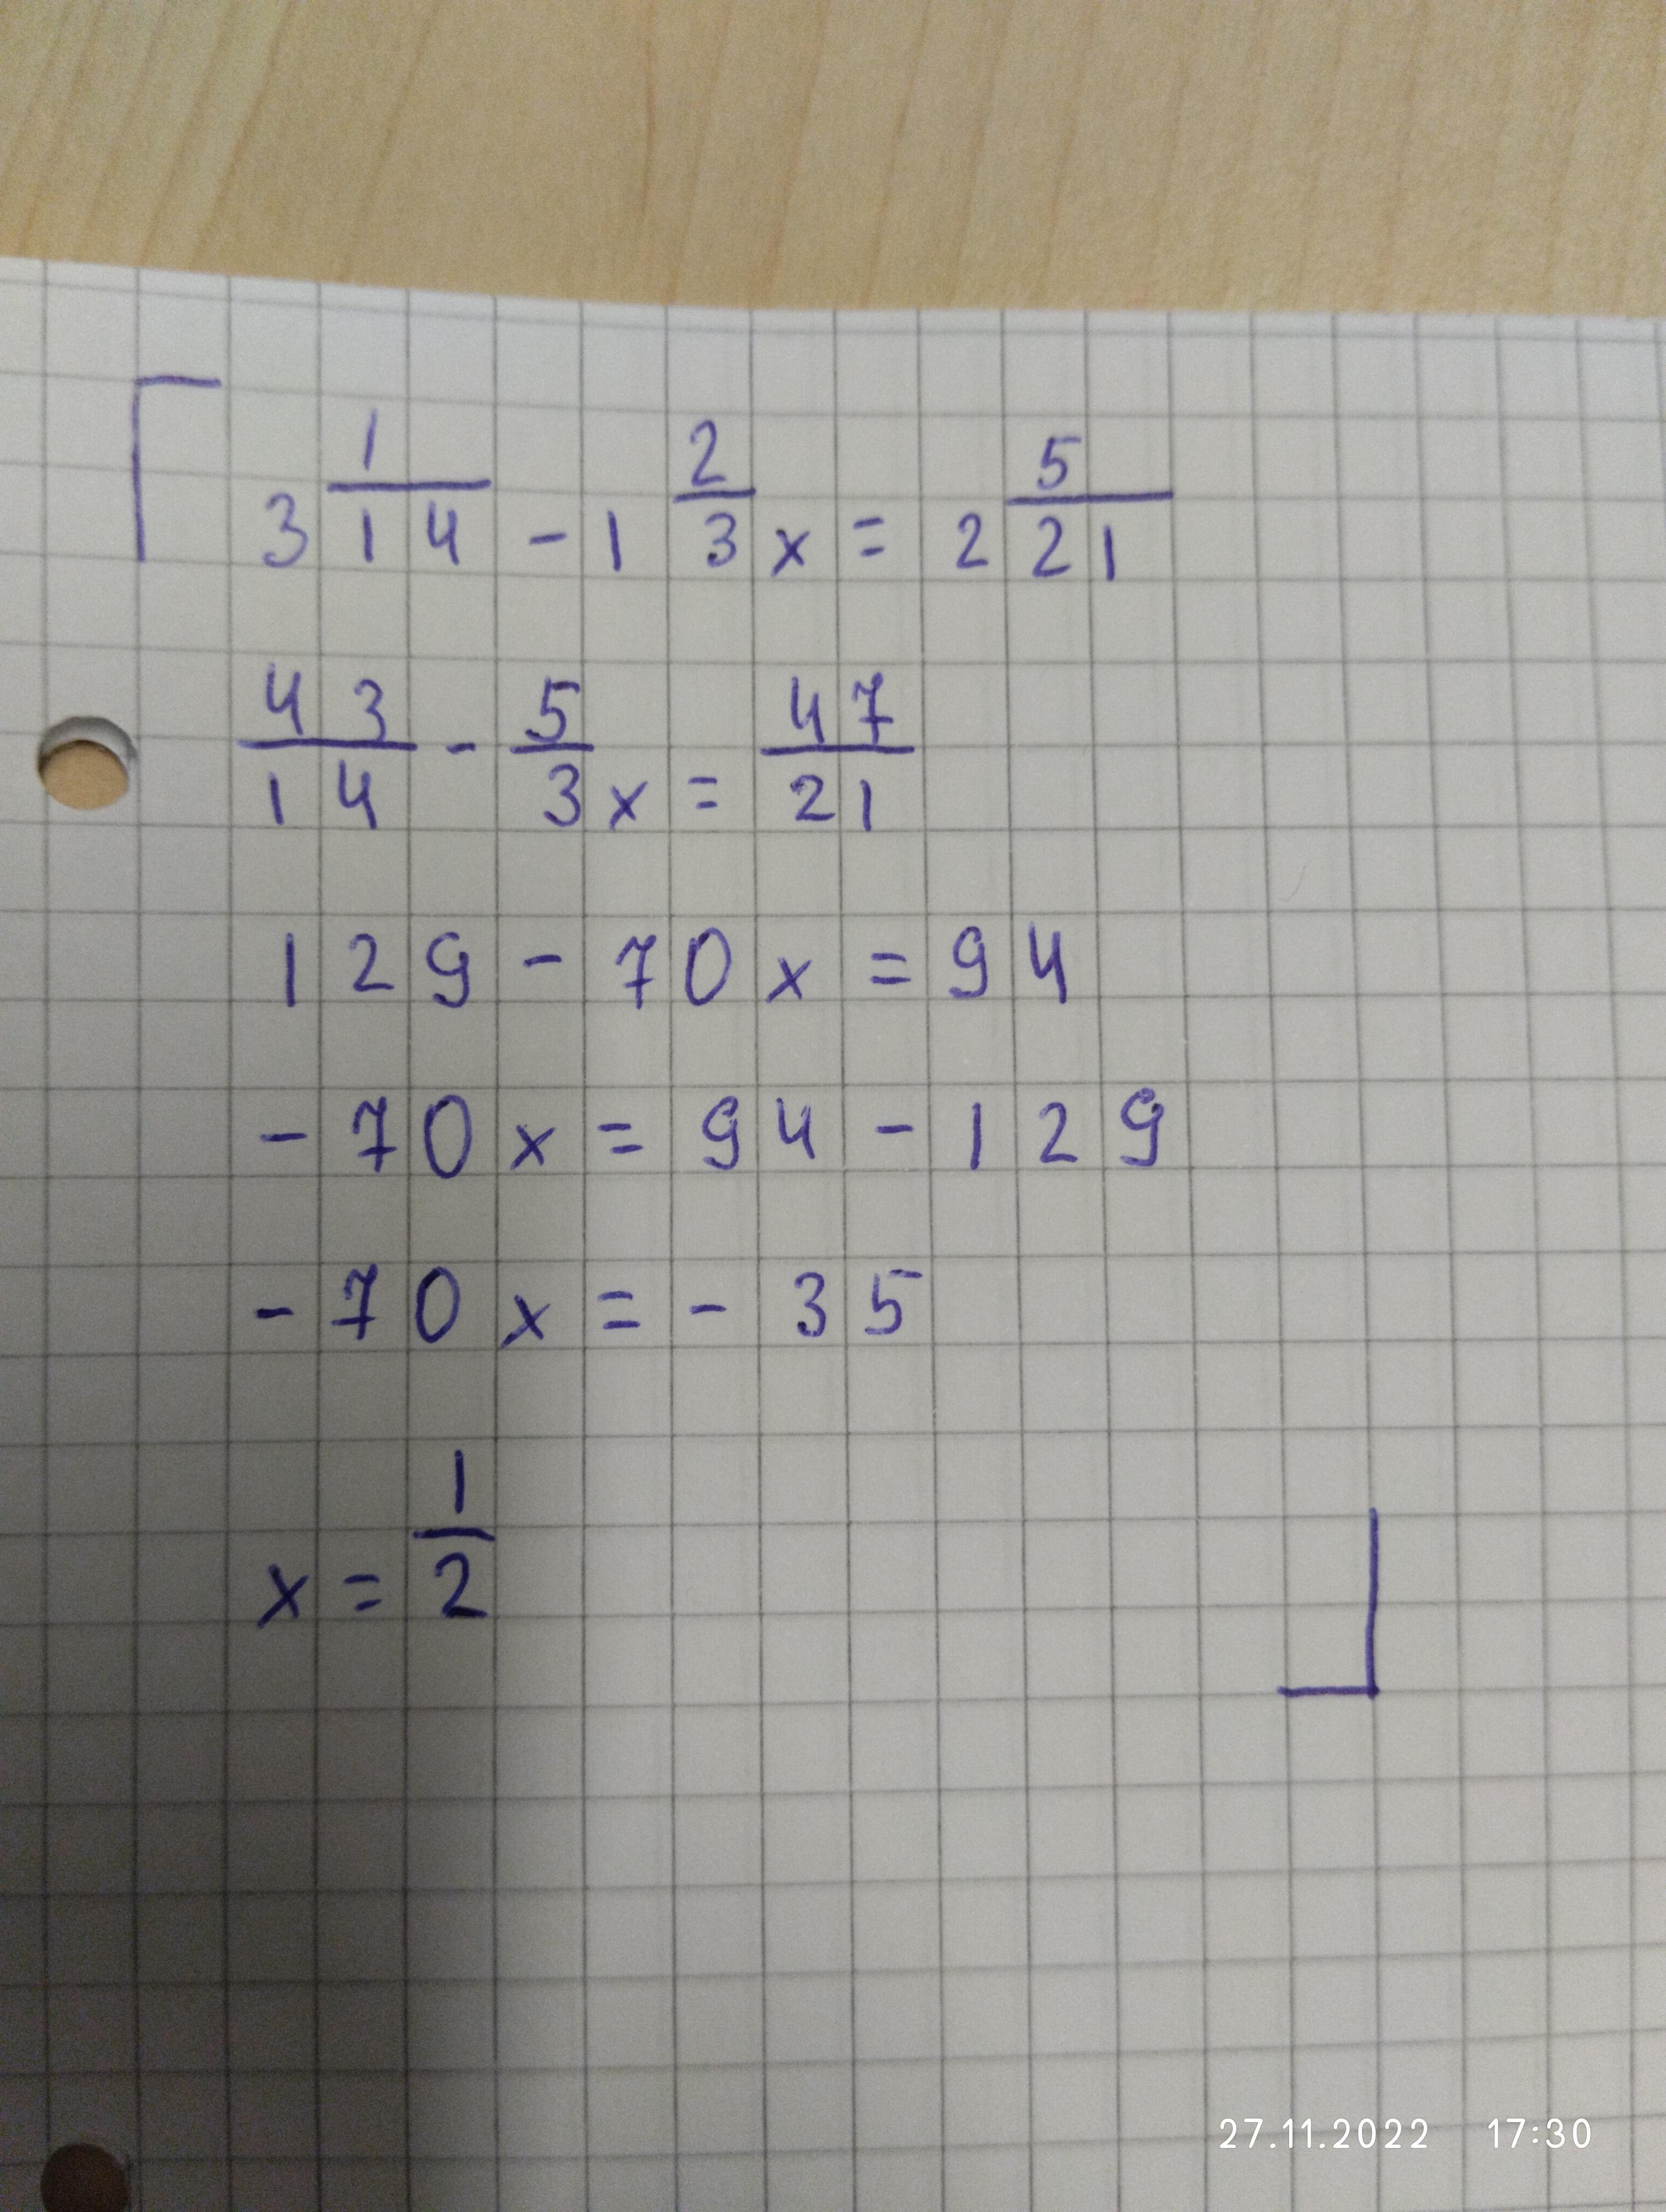 3 1/14 - 1 2/3 x = 2 5/21
43/14 - 5/3 x = 47/21
129 - 70x = 94
-70x = 94 - 129
-70x = -35
x = 1/2
27.11.2022 17:30